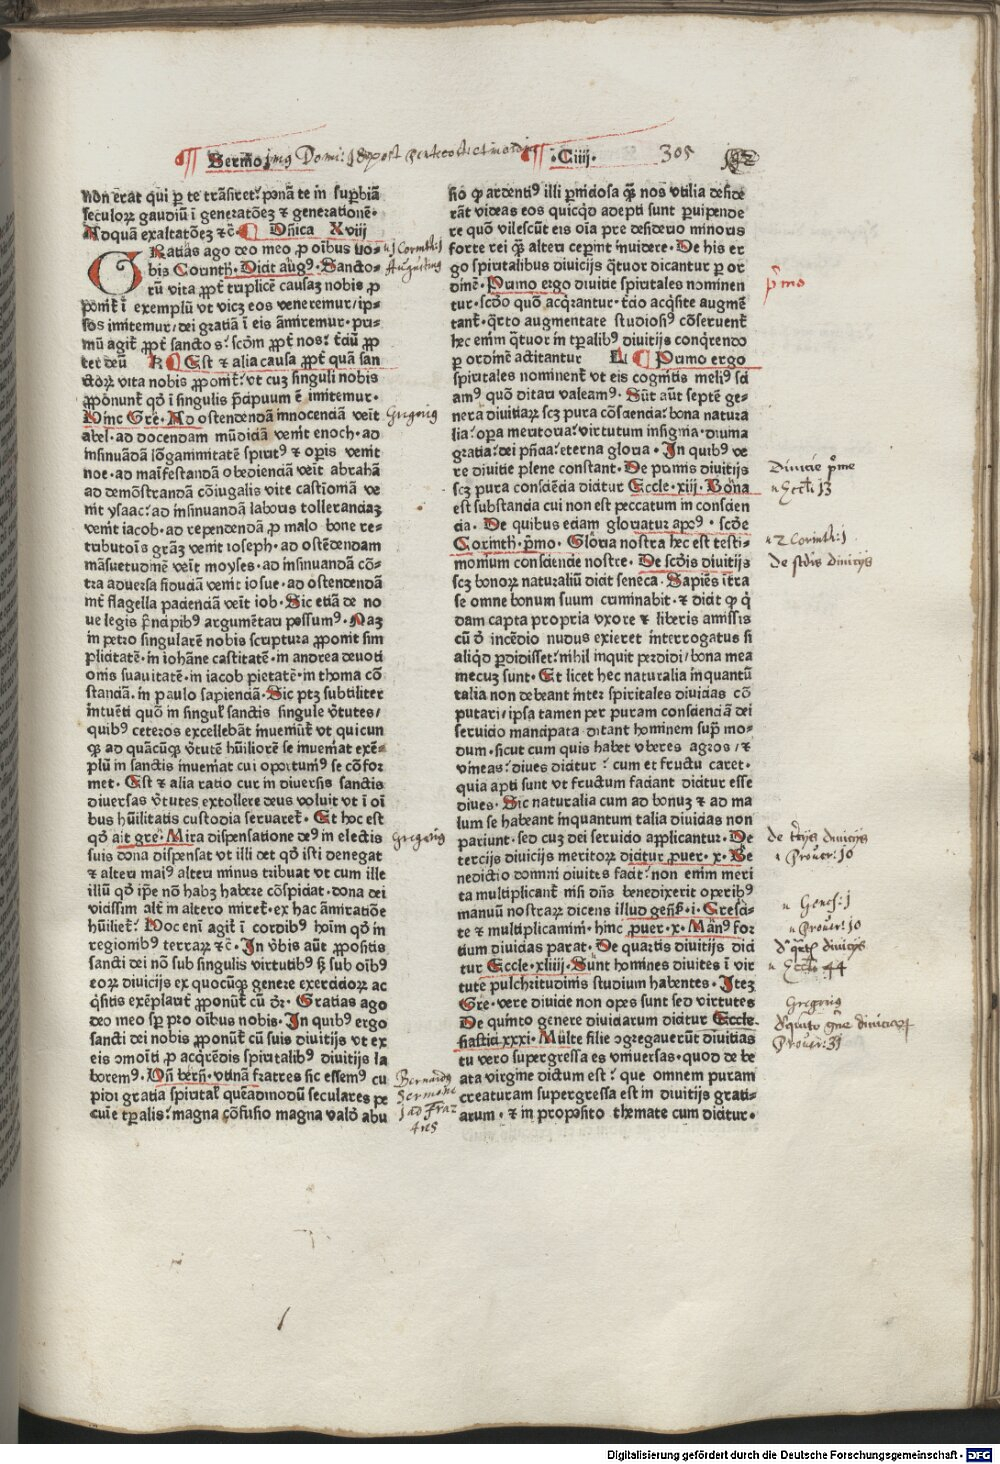 Sermo
.Ciiij.
305
non erat qui ꝑ te trãsiret: ponã te in suꝑbiã
seculoꝝ gaudiũ ĩ generatõeꝫ ⁊ generationẽ.
Ad quã exaltatõeꝫ ⁊c̃. Dñica Xviij
GRatias ago deo meo ꝓ oĩbus uo-
bis Corinth̃. Dicit augꝰ. Sancto-
rũ vita ꝓpt̃ triplicẽ causaꝫ nobis ꝓ
ponit̃ ĩ exemplũ vt vicꝫ eos veneremur/ ip-
sos imitemur/ dei gratiã ĩ eis ãmiremur. pri-
mũ agit̃ ꝓpt̃ sancto s: scõm ꝓpt̃ nos: tciũ ꝓp
ter deũ K Est ⁊ alia causa ꝓpt̃ quã san
ctoꝝ vita nobis ꝓponit̃: vt cuꝫ singuli nobis
ꝓponunt̃ qď ĩ singulis p̃cipuum ẽ imitemur.
Hinc Gre. Ad ostendendã innocenciã veĩt
abel. ad docendam mũdiciã venit enoch. ad
insinuãdã lõganimitatẽ spiritꝰ ⁊ oꝑis venit
noe. ad maĩfestandã obedienciã veĩt abrahã
ad demõstrandã cõiugalis vite castiõmiã ve
nit ysaac. ad insinuandã laboris tolleranciaꝫ
venit iacob. ad rependendã ꝓ malo bone re-
tributõis grãꝫ venit ioseph. ad ostẽdendam
mãsuetudinẽ veĩt moyses. ad insinuandã cõ-
tra aduersa fiduciã venit iosue. ad ostendendã
int̃ flagella pacienciã veĩt iob. Sic etiã de no
ue legis p̃ncipibꝰ argumẽtari possumꝰ. Naꝫ
in petro singularẽ nobis scriptura ꝓponit sim
plicitatẽ. in iohãne castitatẽ. in andrea deuoti
onis suauitatẽ. in iacob pietatẽ. in thoma cõ
stanciã. in paulo sapienciã. Sic ptꝫ subtiliter
intuẽti quõ in singul̃ sanctis singule v̾tutes/
quibꝰ ceteros excellebãt inueniũt̃ vt quicun
qꝫ ad quãcũqꝫ v̾tutẽ hũiliorẽ se inueniat exẽ-
plũ in sanctis inueniat cui oportunꝰ se cõfor
met. Est ⁊ alia ratio cur in diuersis sanctis
diuersas v̾tutes extollere deus voluit vt ĩ oĩ
bus hũilitatis custodia seruaret̃. Et hoc est
qď ait gre. Mira dispensatione deꝰ in electis
suis dona dispensat vt illi det qď isti denegat
⁊ alteri maiꝰ alteri minus tribuat vt cum ille
illũ qď ip̃e nõ habꝫ habere cõspiciat. dona dei
vicissim alt̃ in altero miret̃. ex hac ãmiratiõe
hũiliet̃: Hoc eni agit̃ ĩ cordibꝰ hoĩm qď in
regionibꝰ terraꝝ ⁊c̃. In v̾bis aũt ꝓpositis
sancti dei nõ sub singulis virtutibꝰ ß sub oĩbꝰ
eoꝝ diuicijs ex quocũqꝫ genere exercicioꝝ ac
q̃sitis exẽplariť ꝓponũt̃ cũ dr̃. Gratias ago
deo meo sꝑ pro oĩbus nobis. In quibꝰ ergo
sancti dei nobis ꝓponũt̃ cũ suis diuitijs vt ex
eis ɔmoĩti ꝓ acq̃rẽdis spiritalibꝰ diuitijs la
boremꝰ. Dñ bern̄. vtinã fratres sic essemꝰ cu
pidi gratia spirital̃ quẽadmodũ seculares pe
cuĩe tꝑalis: magna cõfusio magna valď abu
sio ꝙ ardentiꝰ illi ꝑniciosa q̃ꝫ nos vtilia deside
rãt videas eos quicqď adepti sunt ꝑuipende
re quõ vilescũt eis oĩa pre desiderio minoris
forte rei q̃ꝫ alteri ceperint inuidere. De his er
go spiritalibus diuicijs q̃tuor dicantur ꝑ or
dinẽ. Primo ergo diuitie spiritales nominen
tur. scďo quõ acq̃rantur. tcio acq̃site augmẽ
tant̃. q̃rto augmentate studiosiꝰ cõseruent̃
hec enim q̃tuor in tꝑalibꝰ diuitijs conq̃rendo
ꝑ ordinẽ actitantur L Primo ergo
spiritales nominent̃ vt eis cognitis meliꝰ sci
amꝰ quõ ditari valeamꝰ. Sũt aũt septẽ ge-
nera diuitiaꝝ scꝫ pura cõsciencia: bona natura
lia: opera meritoria: virtutum insignia. diuina
gratia: dei pñcia: eterna gloria. In quibꝰ ve
re diuitie plene constant. De primis diuitijs
scꝫ pura consciẽcia dicitur Eccle. xiij. Bona
est substancia cui non est peccatum in conscien
cia. De quibus eciam gloriatur apoꝰ. scďe
Corinth̃. p̃mo. Gloria nostra hec est testi-
monium consciencie nostre. De scďis diuitijs
scꝫ bonoꝝ naturaliũ dicit seneca. Sapiẽs ĩtra
se omne bonum suum criminabit. ⁊ dicit ꝙ q̃
dam capta propria vxore ⁊ liberis amissis
cũ ď incẽdio nudus exieret interrogatus si
aliqď ꝑdidisset: nihil inquit perdidi/ bona mea
mecuꝫ sunt. Et licet hec naturalia inquantũ
talia non debeant inter spiritales diuicias cõ
putari/ ipsa tamen per puram conscienciã dei
seruicio mancipata ditant hominem suꝑ mo-
dum. sicut cum quis habet vberes agros/ ⁊
vineas: diues dicitur: cum et fructu caret.
quia apti sunt vt fructum faciant dicitur esse
diues. Sic naturalia cum ad bonuꝫ ⁊ ad ma
lum se habeant inquantum talia diuicias non
pariunt. sed cuꝫ dei seruicio applicantur. De
tercijs diuicijs meritoꝝ dicitur ꝓuer. x. Be
nedictio domini diuites facit: non enim meri
ta multiplicant̃ nisi dñs benedixerit operibꝰ
manuũ nostraꝝ dicens illud geñ. i. Cresci-
te ⁊ multiplicamini. hinc ꝓuer. x. Manꝰ for
tium diuicias parat. De quartis diuitijs dici
tur Eccle. xliiij. Sunt homines diuites ĩ vir
tute pulchritudinis studium habentes. Iteꝫ
Gre. vere diuicie non opes sunt sed virtutes
De quinto genere diuiciarum dicitur Eccle
siastici xxxi. Multe filie ɔgregauerũt diuitias
tu vero supergressa es vniuersas. quod de be
ata virgine dictum est: que omnem puram
creaturam supergressa est in diuitijs grati-
arum. ⁊ in proposito themate cum dicitur.
j Corinth: j
Augustinus
Gregorius
Gregorius
Bernardus
Sermone
j ad Fra
tres
p̃mo
Diuicie p̃me
Eccli 13
2 Corinth: j
De scďis diuicijs
de t̃cijs diuicijs
Prouer: 10
Genes: j
Prouer: 10
Eccli 44
Gregorius
Prouer: 31
Digitalisierung gefördert durch die Deutsche Forschungsgemeinschaft - DFG